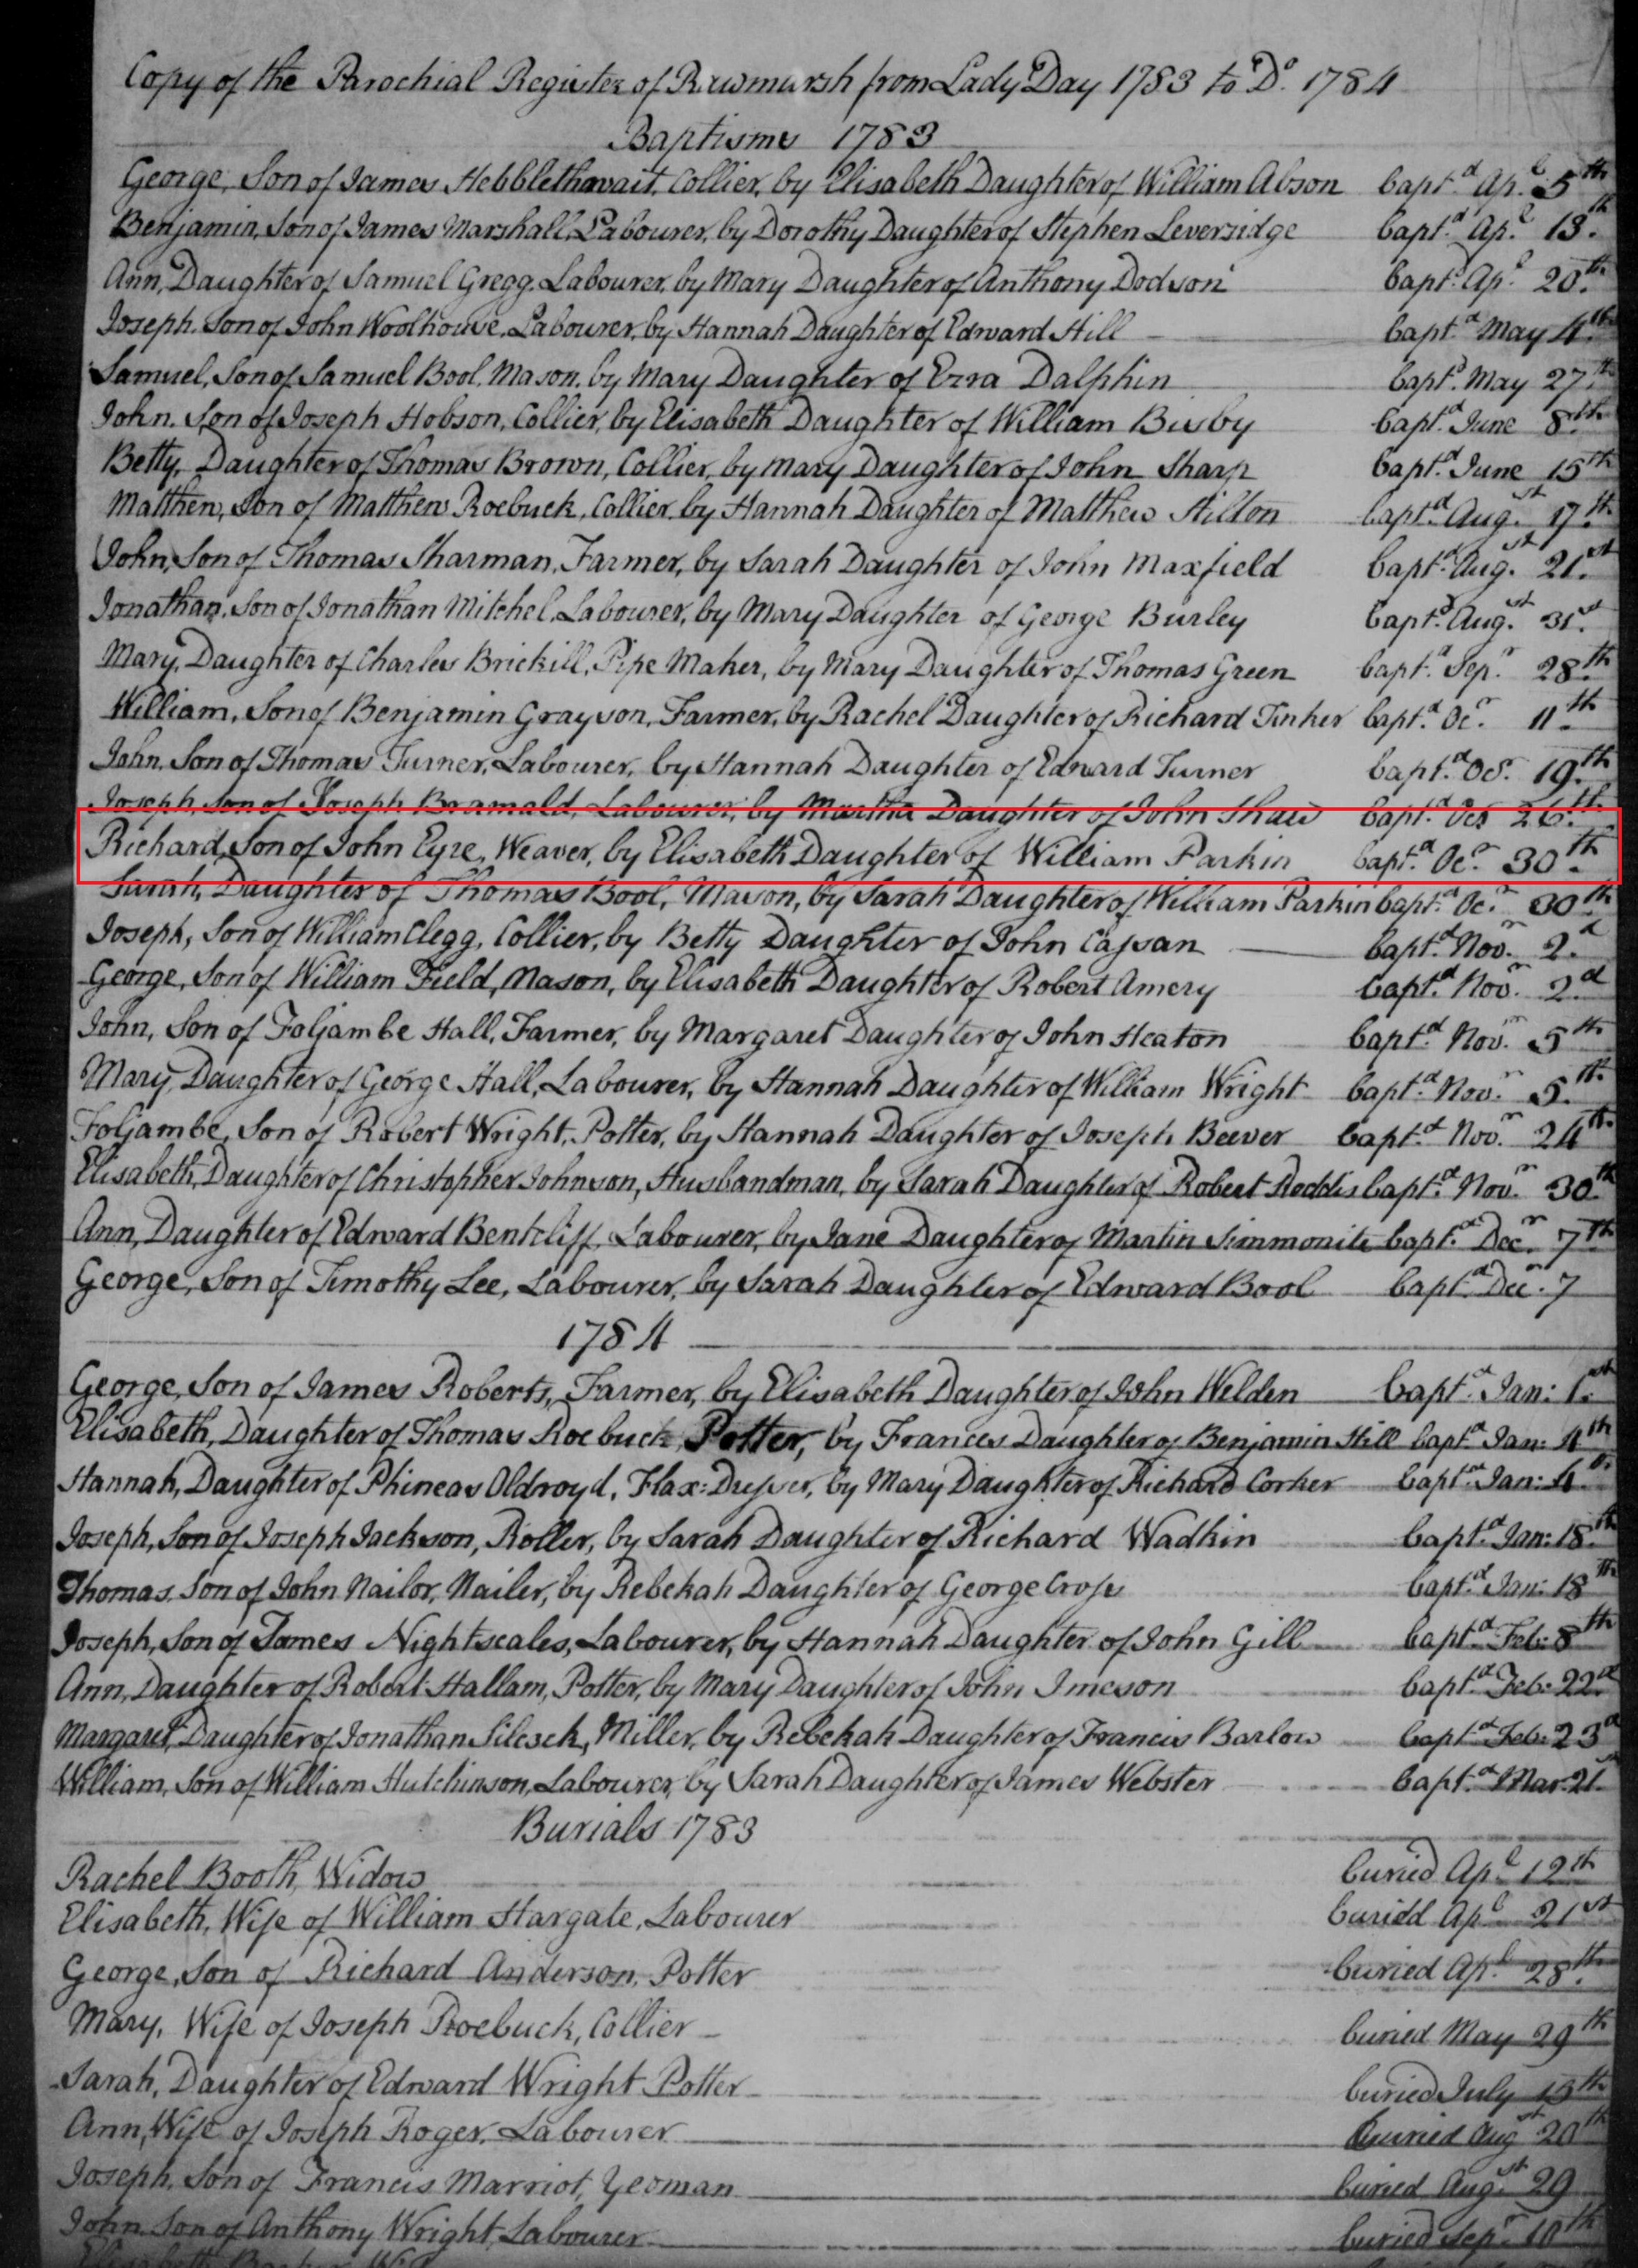 Copy of the Parochial Register of Rawmarsh from Lady Day 1783 to Do. 1784
Baptisms 1783
George, Son of James Hebblethwait, Collier, by Elisabeth Daughter of William Abson bapt.d Ap.l 5th
Benjamin, Son of James Marshall, Labourer, by Dorothy Daughter of Stephen Leversidge bapt.d Ap.l 13.th
Ann, Daughter of Samuel Gregg, Labourer, by Mary Daughter of Anthony Dodson bapt.d Ap.l 20.th
Joseph, Son of John Woolhouse, Labourer, by Hannah Daughter of Edward Hill bapt.d May 4th
Samuel, Son of Samuel Bool, Mason, by Mary Daughter of Ezra Dalphin bapt.d May 27.th
John, Son of Joseph Hobson, Collier, by Elisabeth Daughter of William Bisby bapt.d June 8.th
Betty, Daughter of Thomas Brown, Collier, by Mary Daughter of John Sharp bapt.d June 15th
Matthew, Son of Matthew Roebuck, Collier, by Hannah Daughter of Matthew Hilton bapt.d Aug.st 17.th
John, Son of Thomas Sharman, Farmer, by Sarah Daughter of John Maxfield bapt.d Aug.st 21.st
Jonathan, Son of Jonathan Mitchel, Labourer, by Mary Daughter of George Burley bapt.d Aug.st 31.st
Mary, Daughter of Charles Brickill, Pipe Maker, by Mary Daughter of Thomas Green bapt.d Sep.r 28.th
William, Son of Benjamin Grayson, Farmer, by Rachel Daughter of Richard Tinker bapt.d Oc.r 11.th
John, Son of Thomas Turner, Labourer, by Hannah Daughter of Edward Turner bapt.d Oc.r 19.th
Joseph, Son of Joseph Bramald, Labourer, by Martha Daughter of John Shaw bapt.d Oc.r 26.th
Richard, Son of John Eyre, Weaver, by Elisabeth Daughter of William Parkin bapt.d Oc.r 30.th
Sarah, Daughter of Thomas Bool, Mason, by Sarah Daughter of William Parkin bapt.d Oc.r 30.th
Joseph, Son of William Clegg, Collier, by Betty Daughter of John Capan bapt.d Nov.r 2.d
George, Son of William Field, Mason, by Elisabeth Daughter of Robert Amery bapt.d Nov.r 2.d
John, Son of Foljambe Hall, Farmer, by Margaret Daughter of John Heaton bapt.d Nov.r 5th
Mary, Daughter of George Hall, Labourer, by Hannah Daughter of William Wright bapt.d Nov.r 5.th
Foljambe, Son of Robert Wright, Potter, by Hannah Daughter of Joseph Beever bapt.d Nov.r 24th
Elisabeth, Daughter of Christopher Johnson, Husbandman, by Sarah Daughter of Robert Roddis bapt.d Nov.r 30.th
Ann, Daughter of Edward Bentcliff, Labourer, by Jane Daughter of Martin Simmonite bapt.d Dec.r 7th
George, Son of Timothy Lee, Labourer, by Sarah Daughter of Edward Bool bapt.d Dec.r 7
1784
George, Son of James Roberts, Farmer, by Elisabeth Daughter of John Welden bapt.d Jan: 1.st
Elisabeth, Daughter of Thomas Roebuck, Potter, by Frances Daughter of Benjamin Hill bapt.d Jan: 4th
Hannah, Daughter of Phineas Oldroyd, Flax:Dresser, by Mary Daughter of Richard Corker bapt.d Jan: 4.th
Joseph, Son of Joseph Jackson, Roller, by Sarah Daughter of Richard Wadkin bapt.d Jan: 18.th
Thomas, Son of John Nailor, Nailer, by Rebekah Daughter of George Cross bapt.d Jan: 18th
Joseph, Son of James Nightscales, Labourer, by Hannah Daughter of John Gill bapt.d Feb: 8th
Ann, Daughter of Robert Hallam, Potter, by Mary Daughter of John Imeson bapt.d Feb: 22.d
Margaret, Daughter of Jonathan Silcock, Miller, by Rebekah Daughter of Francis Barlow bapt.d Feb: 23d
William, Son of William Hutchinson, Labourer, by Sarah Daughter of James Webster bapt.d Mar: 21.st
Burials 1783
Rachel Booth, Widow buried Ap.l 12th
Elisabeth, Wife of William Hargate, Labourer buried Ap.l 21st
George, Son of Richard Anderson, Potter buried Ap.l 28.th
Mary, Wife of Joseph Roebuck, Collier buried May 29th
Sarah, Daughter of Edward Wright Potter buried July 13th
Ann, Wife of Joseph Roger, Labourer buried Aug.st 20th
Joseph, Son of Francis Marriot, Yeoman buried Aug.st 29
John Son of Anthony Wright, Labourer buried Sep.r 10th
Elisabeth